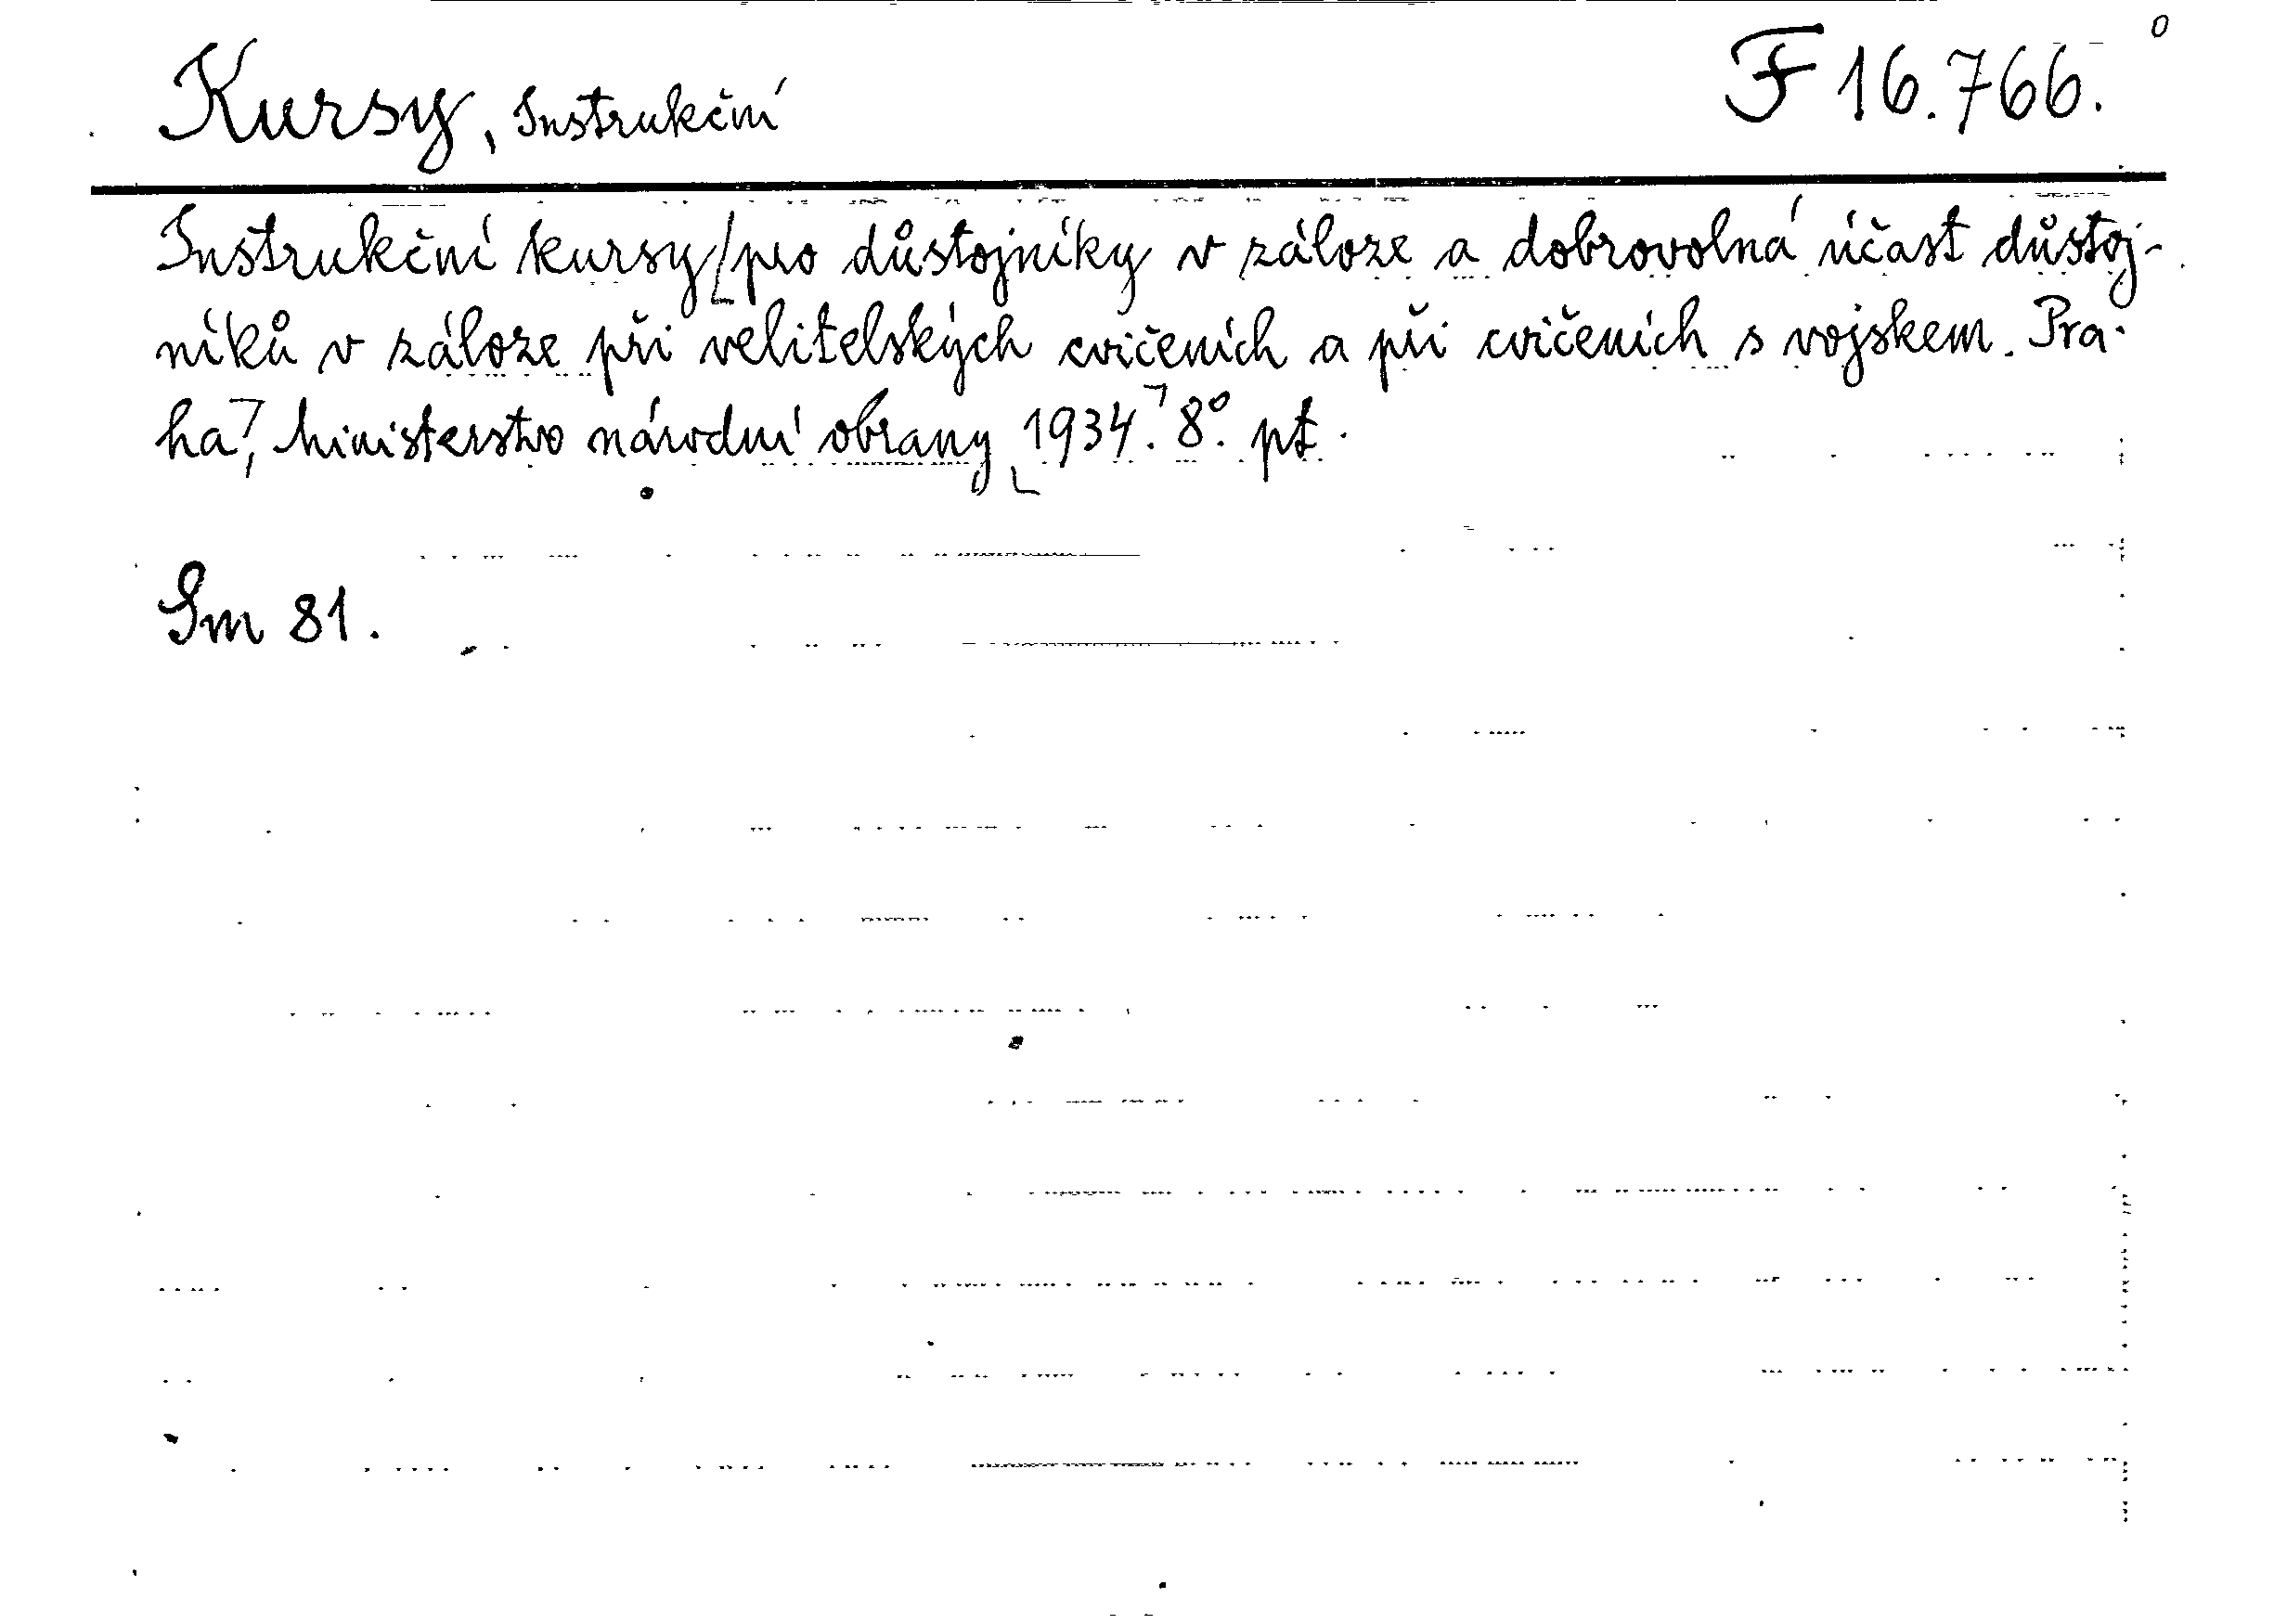 Kursy, Instrukční F 16.766.
Instrukční kursy pro důstojníky v záloze a dobrovolná účast důstoj-
níků v záloze při velitelských cvičeních a při cvičeních s vojskem. Pra-
ha, Ministerstvo národní obrany 1934. 8°. pt.
Sm 81.